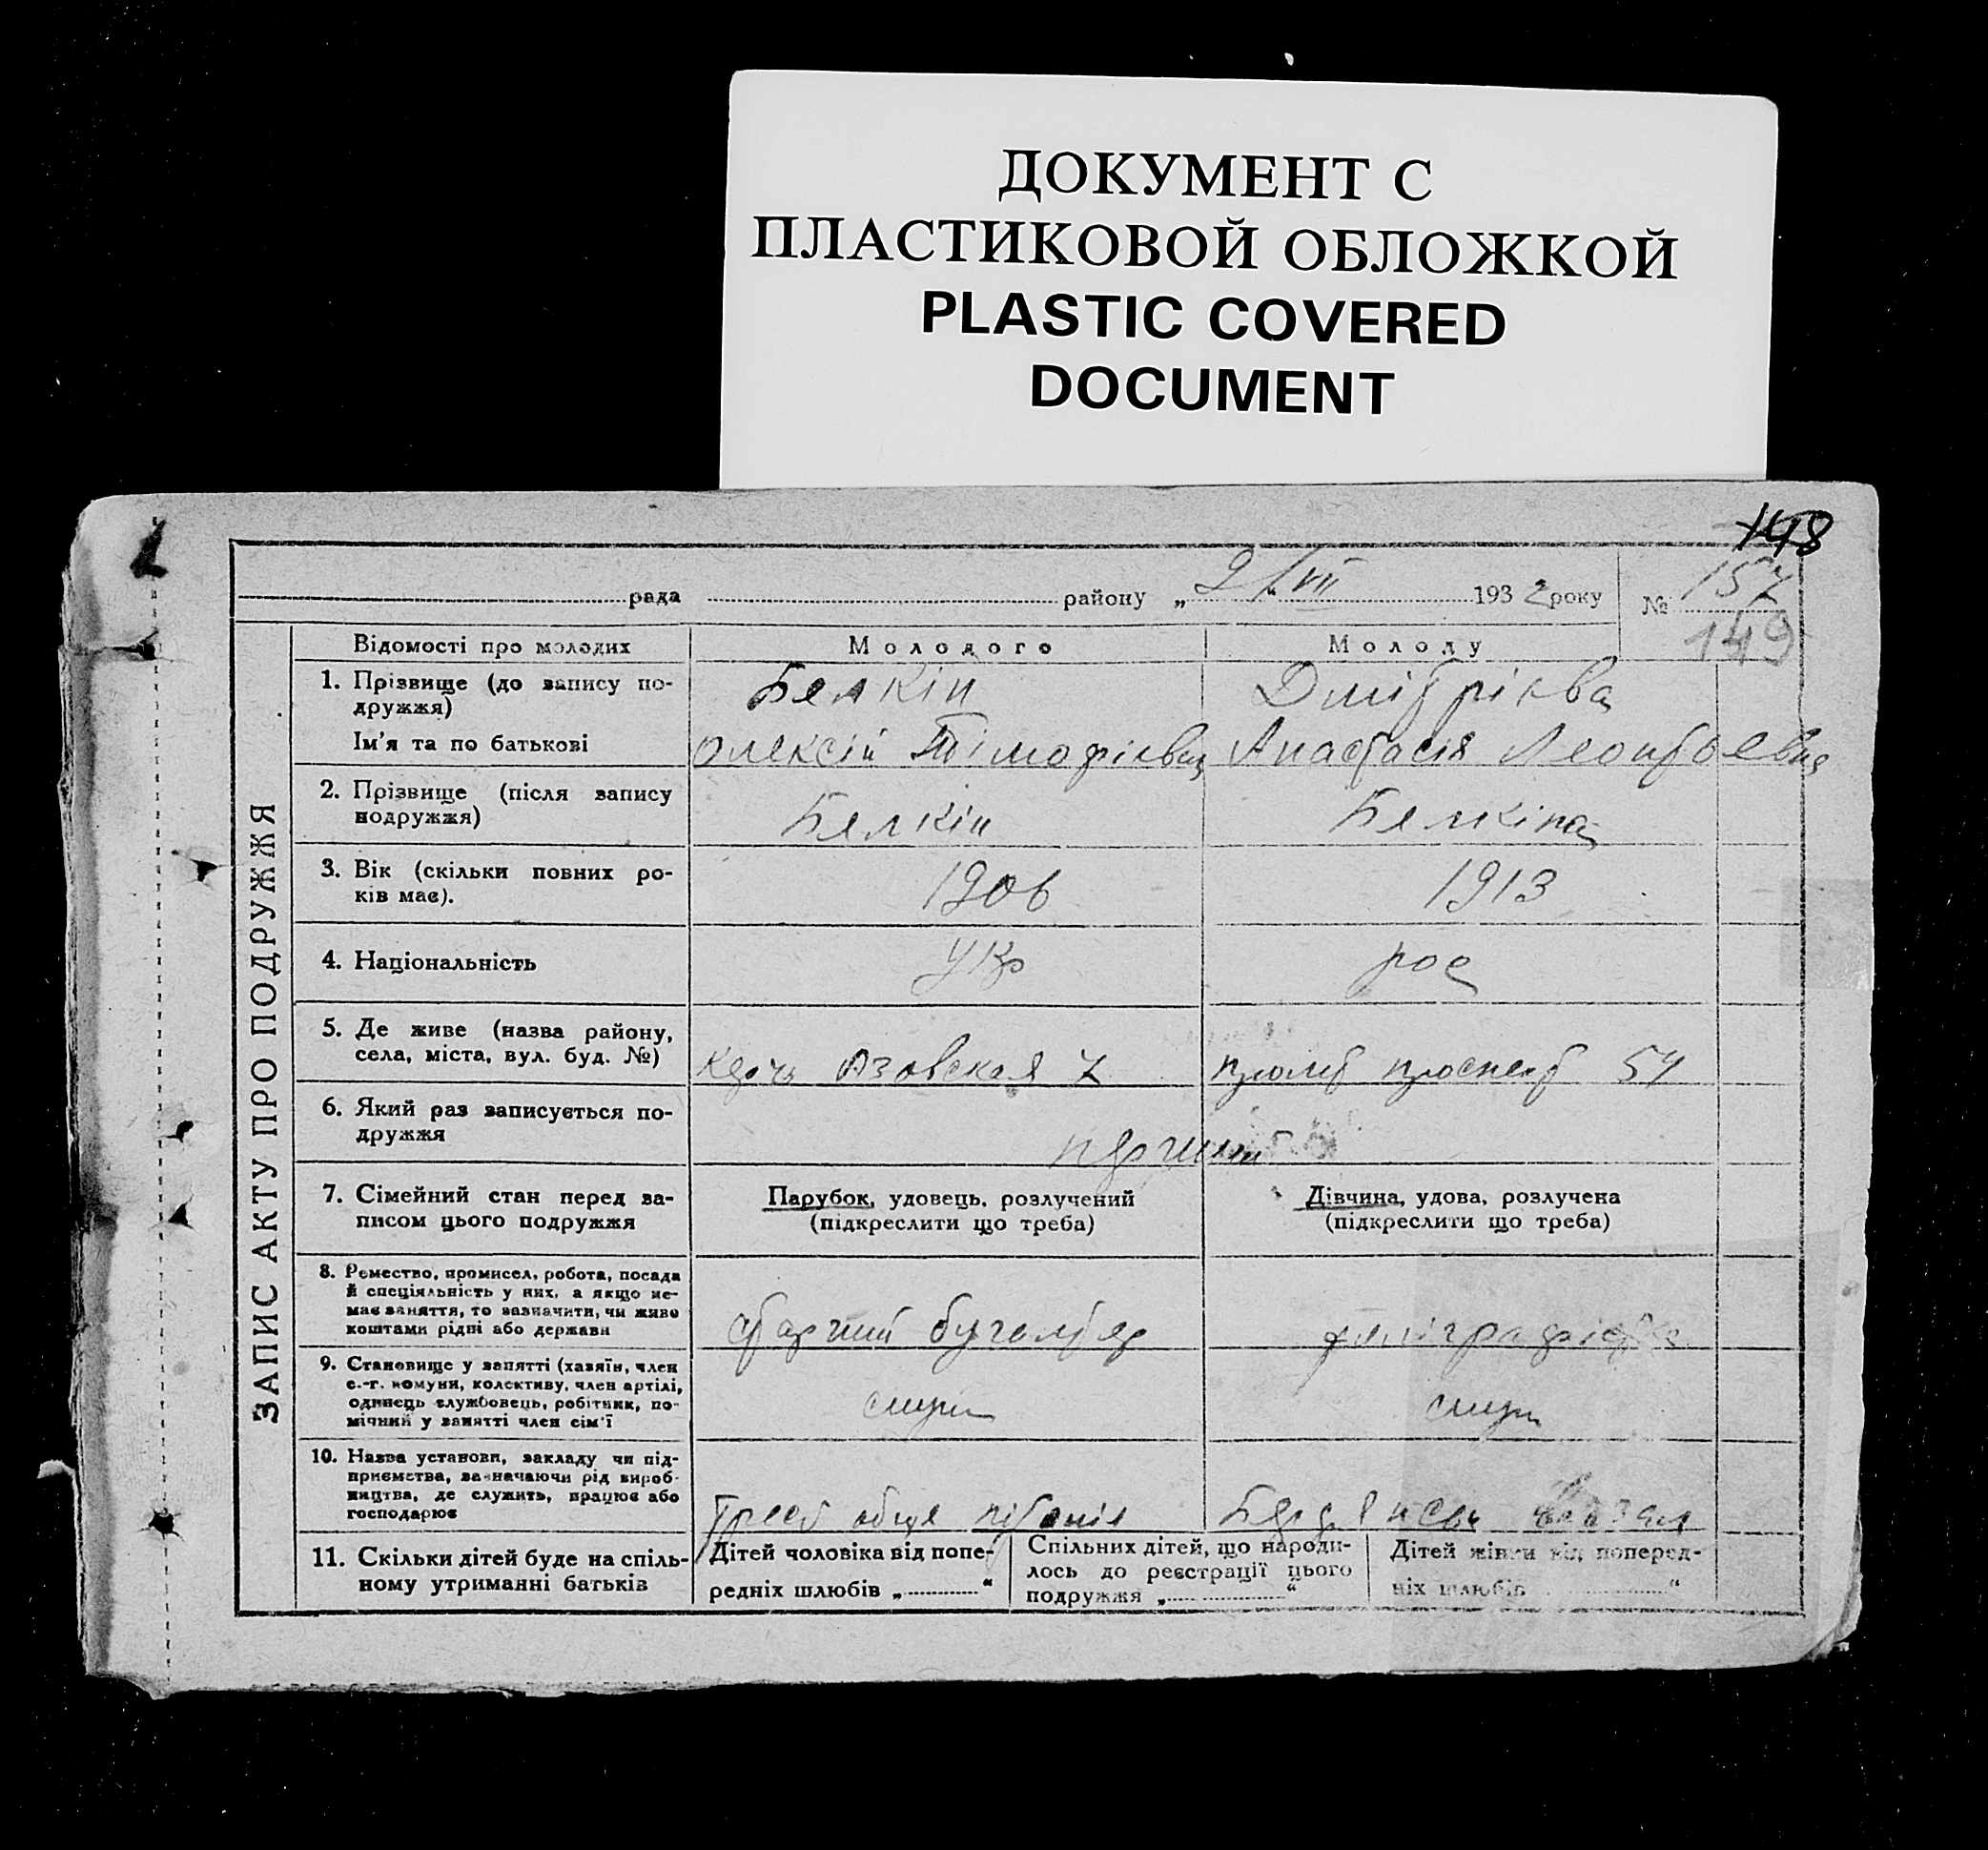 ДОКУМЕНТ С
ПЛАСТИКОВОЙ ОБЛОЖКОЙ
PLASTIC COVERED
DOCUMENT
148
рада району „2“ VII 1932 року № 157
149
ЗАПИС АКТУ ПРО ПОДРУЖЖЯ
Відомості про молодих Молодого Молоду
1. Прізвище (до запису по-
дружжя) Белкін Дмітріева
Ім'я та по батькові Олексій Тімофіевич Анастасія Леонтоевна
2. Прізвище (після запису
подружжя) Белкін Белкіна
3. Вік (скільки повних ро-
ків має). 1906 1913
4. Національність укр рос
5. Де живе (назва району,
села, міста, вул. буд. №) Керчь Азовская 7 пролет проспект 54
6. Який раз записується по-
дружжя перший
7. Сімейний стан перед за-
писом цього подружжя
Парубок, удовець, розлучений
(підкреслити що треба)
Дівчина, удова, розлучена
(підкреслити що треба)
8. Ремество, промисел, робота, посада
й спеціяльність у них, а якщо не-
має заняття, то зазначити, чи живе
коштами рідні або держави
старший бугалтер
9. Становище у занятті (хазяїн, член
с.-г. комуни, колективу, член артілі,
одинець службовець, робітник, по-
мічний у занятті член сім'ї
служ служ
10. Назва установи, закладу чи під-
приємства, зазначаючи рід вироб-
ництва, де служить, працює або
господарює
Трест
11. Скільки дітей буде на спіль-
ному утриманні батьків
Дітей чоловіка від попе-
редніх шлюбів „ “
Спільних дітей, що народи-
лось до реєстрації цього
подружжя „ “
Дітей жінки від поперед-
ніх шлюбів “